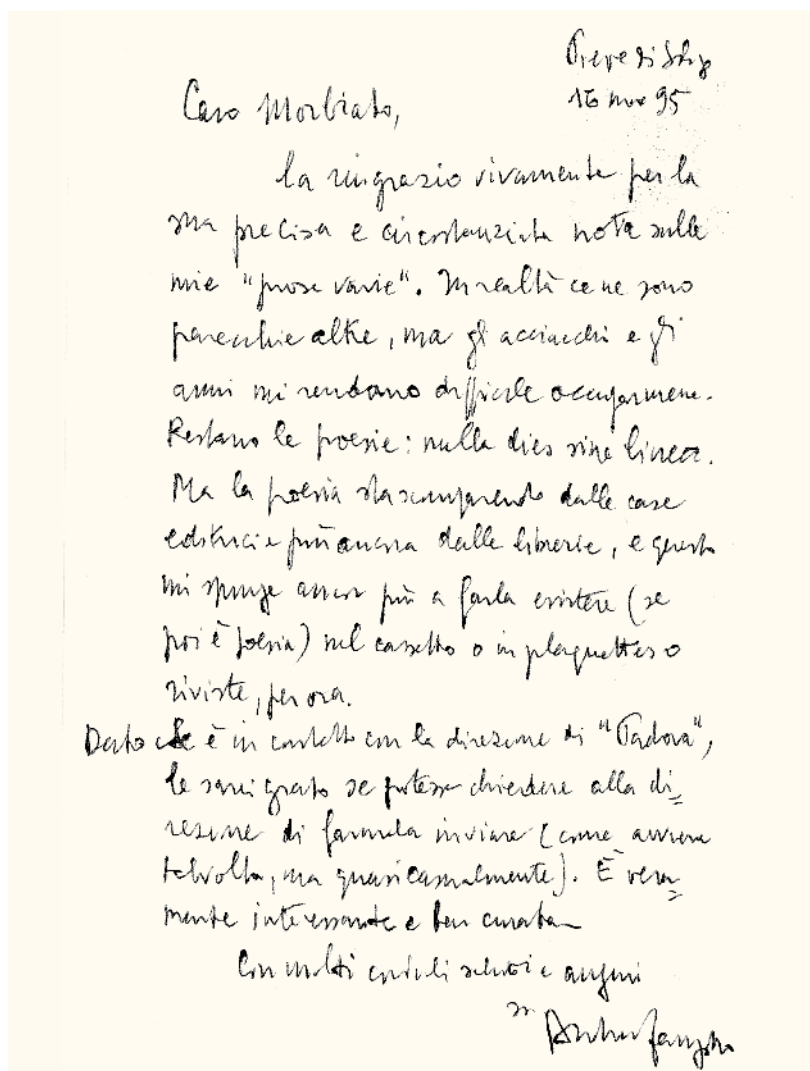 Pieve di Sol.go
16 nov 95
Caro Morbiato,
la ringrazio vivamente per la
sua precisa e circostanziata nota sulle
mie "prose varie". In realtà ce ne sono
parecchie altre, ma gli acciacchi e gli
anni mi rendono difficile occuparmene.
Restano le poesie: nulla dies sine linea.
Ma la poesia sta scomparendo dalle case
editrici e più ancora dalle librerie, e questo
mi spinge ancor più a farla esistere (se
poi è poesia) nel cassetto o in plaquettes o
riviste, per ora.
Dato che è in contatto con la direzione di "Padova",
le sarei grato se potesse chiedere alla di=
rezione di farmela inviare (come avviene
talvolta, ma quasi casualmente). È vera=
mente interessante e ben curata
Con molti cordiali saluti e auguri
suo Andrea Zanzotto